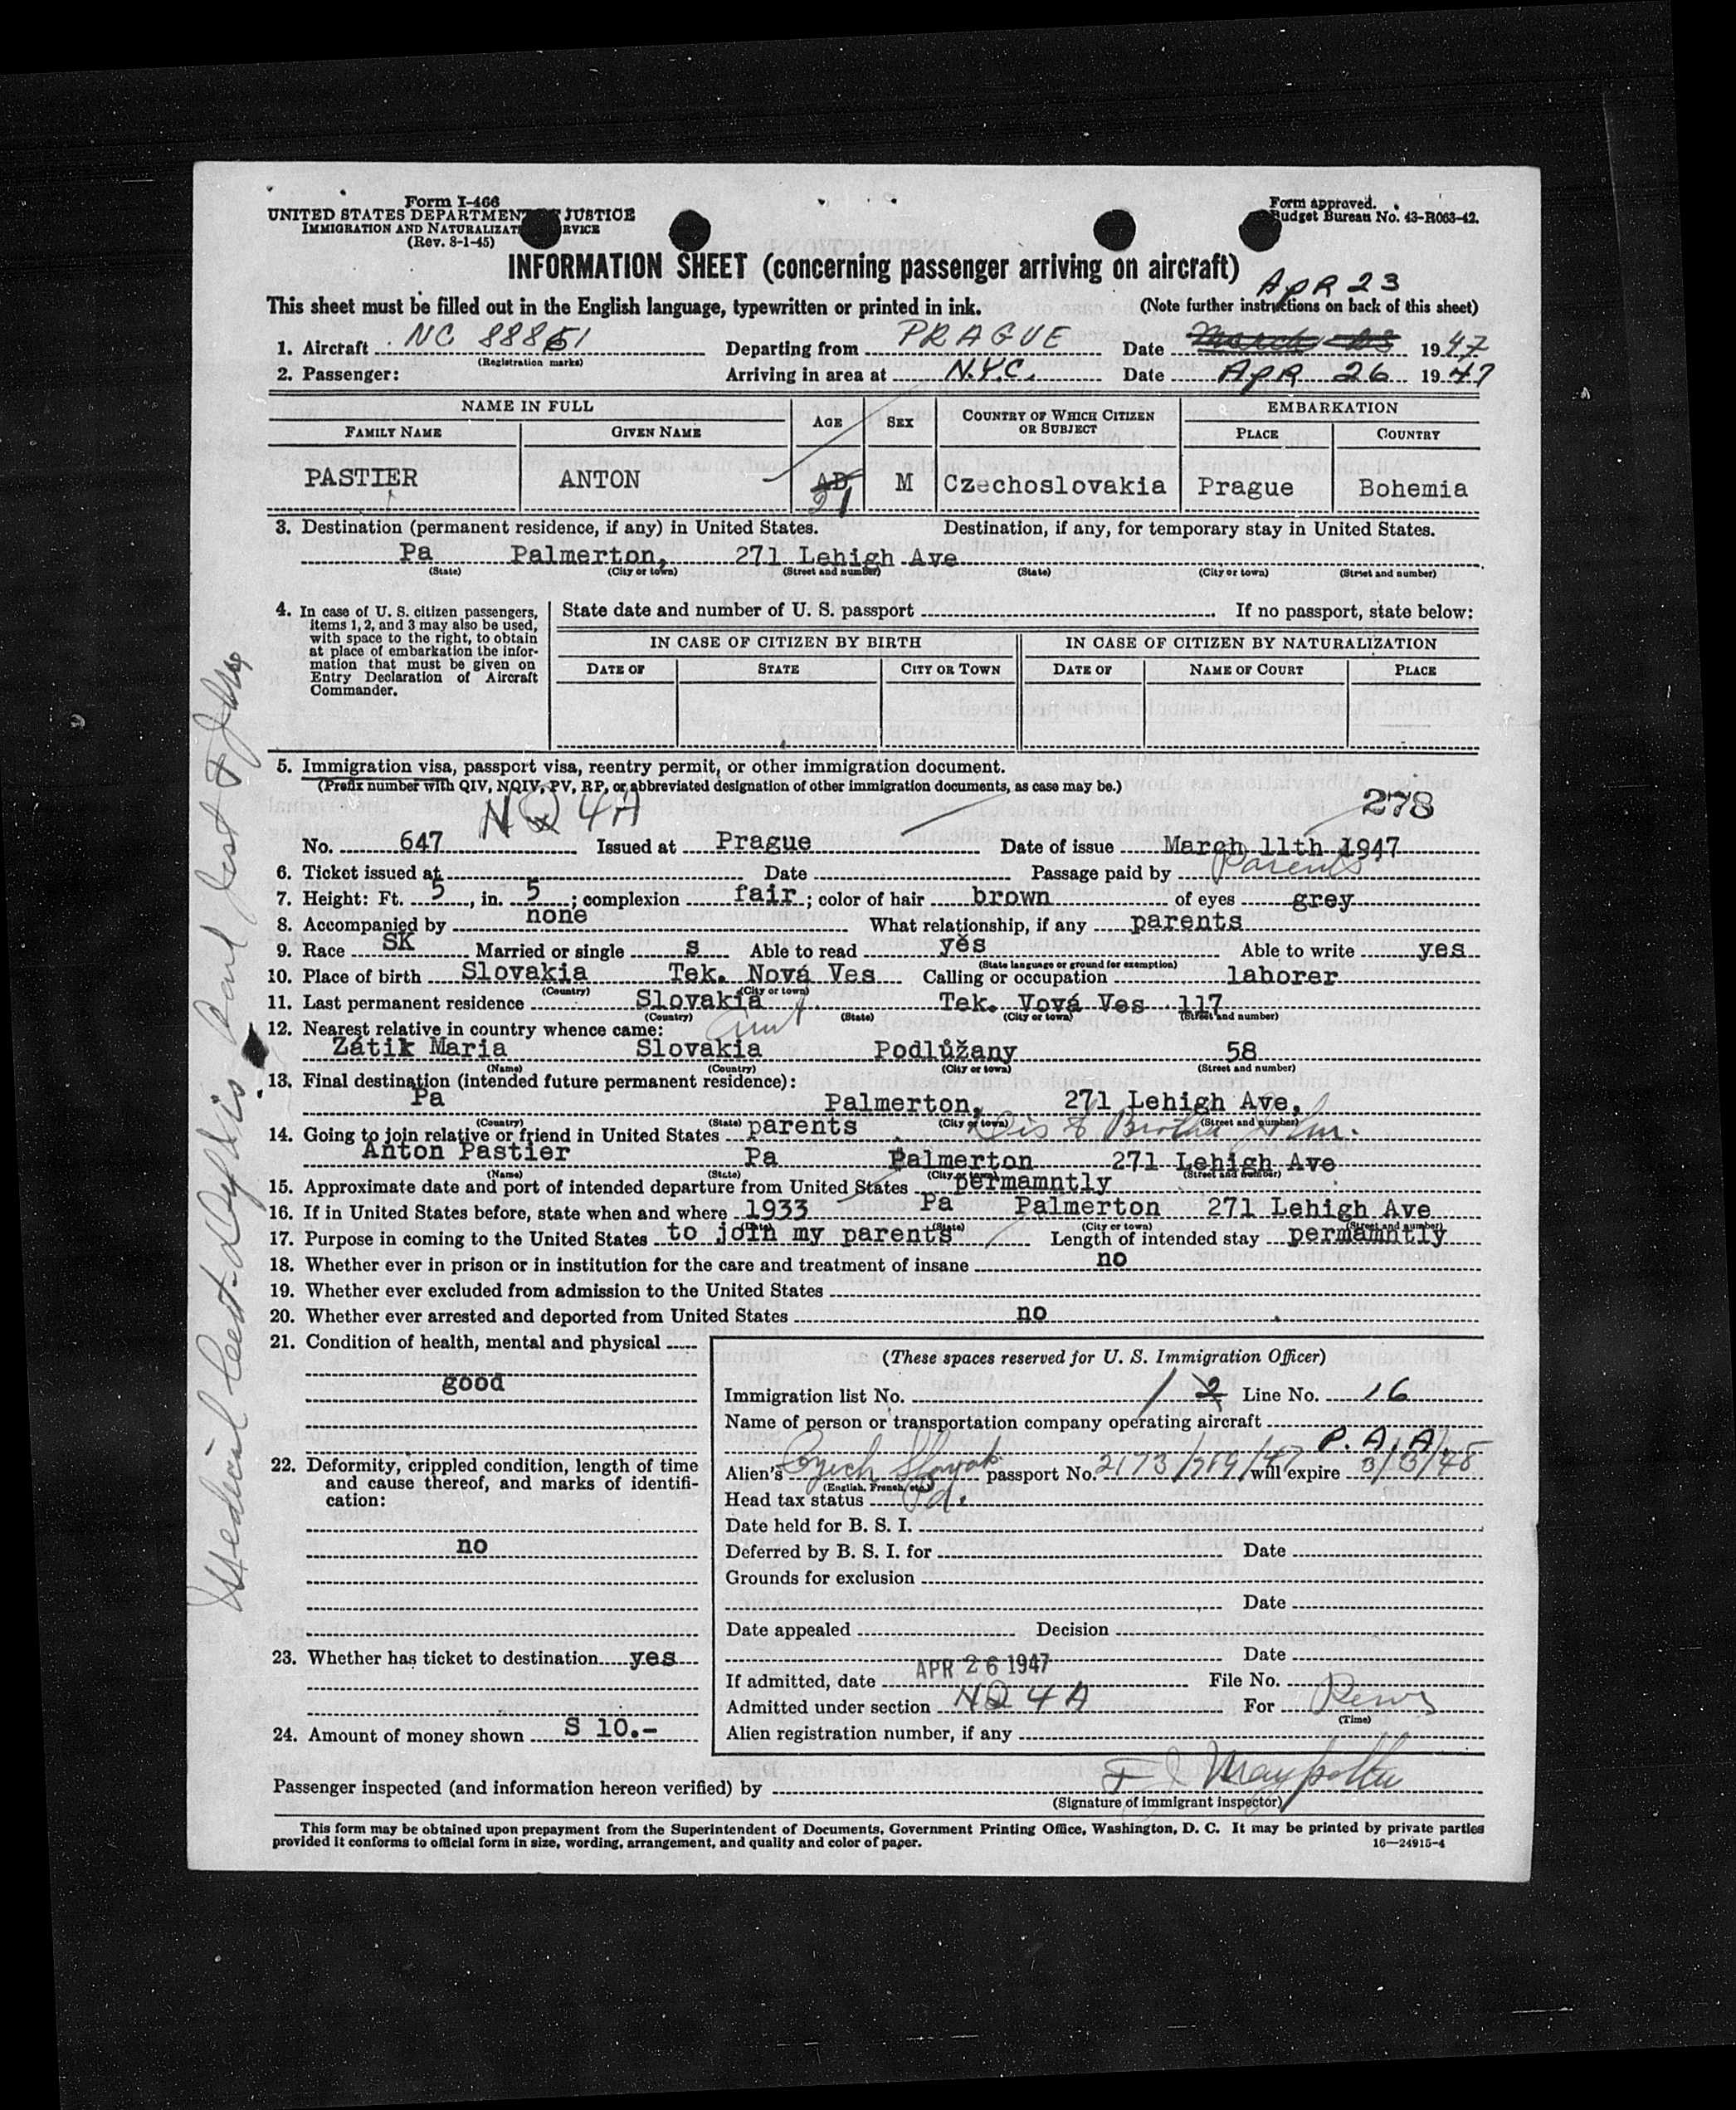 Form I-466
UNITED STATES DEPARTMENT JUSTICE
IMMIGRATION AND NATURALIZAT RVICE
(Rev. 8-1-45)
Form approved.
Budget Bureau No. 43-R063-42.
INFORMATION SHEET (concerning passenger arriving on aircraft)
APR 23
This sheet must be filled out in the English language, typewritten or printed in ink. (Note further instructions on back of this sheet)
1. Aircraft NC 88861 Departing from PRAGUE Date March 1947
(Registration marks)
2. Passenger: Arriving in area at N.Y.C. Date APR 26 1947
NAME IN FULL AGE SEX COUNTRY OF WHICH CITIZEN OR SUBJECT EMBARKATION
FAMILY NAME GIVEN NAME PLACE COUNTRY
PASTIER ANTON AD 21 M Czechoslovakia Prague Bohemia
3. Destination (permanent residence, if any) in United States. Destination, if any, for temporary stay in United States.
Pa Palmerton, 271 Lehigh Ave
(State) (City or town) (Street and number) (State) (City or town) (Street and number)
4. In case of U. S. citizen passengers, items 1, 2, and 3 may also be used, with space to the right, to obtain at place of embarkation the information that must be given on Entry Declaration of Aircraft Commander.
State date and number of U. S. passport If no passport, state below:
IN CASE OF CITIZEN BY BIRTH IN CASE OF CITIZEN BY NATURALIZATION
DATE OF STATE CITY OR TOWN DATE OF NAME OF COURT PLACE
5. Immigration visa, passport visa, reentry permit, or other immigration document.
(Prefix number with QIV, NQIV, PV, RP, or abbreviated designation of other immigration documents, as case may be.)
NQ 4A 278
No. 647 Issued at Prague Date of issue March 11th 1947
6. Ticket issued at Date Passage paid by Parents
7. Height: Ft. 5, in. 5; complexion fair; color of hair brown of eyes grey
8. Accompanied by none What relationship, if any parents
9. Race SK Married or single s Able to read yes Able to write yes
(State language or ground for exemption)
10. Place of birth Slovakia Tek. Nová Ves Calling or occupation laborer
(Country) (City or town)
11. Last permanent residence Slovakia Tek. Vová Ves 117
(Country) (State) (City or town) (Street and number)
12. Nearest relative in country whence came: Aunt
Zátik Maria Slovakia Podlůžany 58
(Name) (Country) (City or town) (Street and number)
13. Final destination (intended future permanent residence):
Pa Palmerton, 271 Lehigh Ave,
(Country) (State) (City or town) (Street and number)
14. Going to join relative or friend in United States parents
Anton Pastier Pa Palmerton 271 Lehigh Ave
(Name) (State) (City or town) (Street and number)
15. Approximate date and port of intended departure from United States permamntly
16. If in United States before, state when and where 1933 Pa Palmerton 271 Lehigh Ave
(Date) (State) (City or town) (Street and number)
17. Purpose in coming to the United States to join my parents Length of intended stay permamntly
18. Whether ever in prison or in institution for the care and treatment of insane no
19. Whether ever excluded from admission to the United States
20. Whether ever arrested and deported from United States no
21. Condition of health, mental and physical
good
22. Deformity, crippled condition, length of time and cause thereof, and marks of identification:
no
23. Whether has ticket to destination yes
24. Amount of money shown S 10.-
(These spaces reserved for U. S. Immigration Officer)
Immigration list No. 1 2 Line No. 16
Name of person or transportation company operating aircraft
P. A. A.
Alien's Czech Slovak passport No. 2173/ /47 will expire 3/3/48
(English, French, etc.)
Head tax status Pd.
Date held for B. S. I.
Deferred by B. S. I. for Date
Grounds for exclusion
Date
Date appealed Decision
Date
If admitted, date APR 26 1947 File No.
Admitted under section NQ 4A For
(Time)
Alien registration number, if any
Passenger inspected (and information hereon verified) by
(Signature of immigrant inspector)
This form may be obtained upon prepayment from the Superintendent of Documents, Government Printing Office, Washington, D. C. It may be printed by private parties
provided it conforms to official form in size, wording, arrangement, and quality and color of paper. 16—24915-4
Medical